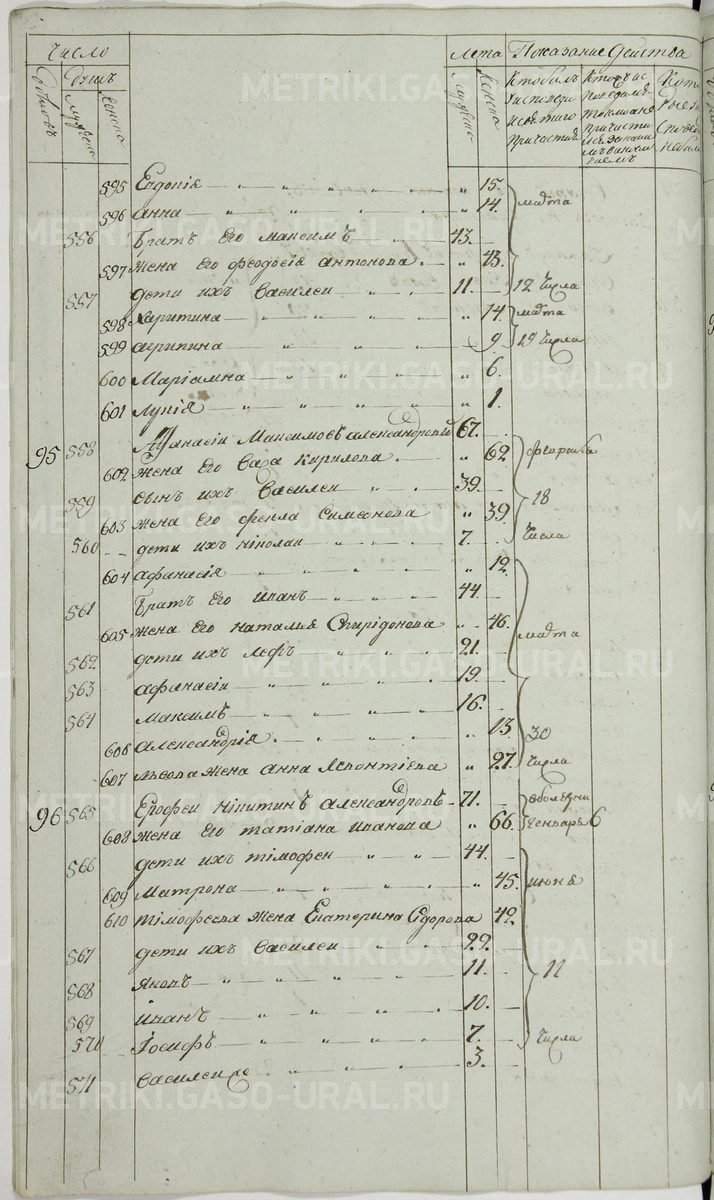 Число
Лета Показание действа
дворовъ
душъ
мужеска
женска
мужеска
женска
Кто былъ
исповеди
и святаго
причастия
595 Евдокія 15.
596 Анна 14. марта
556 Братъ Его Максимъ 43.
597 жена Его феодосія Антонова 43.
557 дети ихъ Василеи 11. 12 числа
598 Харитина 14. марта
599 агрипина 9 19 числа
600 Маріамна 6.
601 Лукія 1.
95 558 Афанасіи Максимовъ александровых 67.
602 жена Его Сара Кирилова 62 февраля
559 сынъ ихъ Василеи 39. 18
603 жена Его фекла Симеонова 39.
560 дети ихъ ніколаи 7. числа
604 афанасія 12.
561 Братъ Его иванъ 44.
605 жена Его наталия Спирідонова 46. марта
562 дети ихъ Левъ 21.
563 афанасіи 19.
564 Максимъ 16.
606 александрія 13. 30
607 львова жена анна Леонтіева 27. числа
96 565 Ерофеи нікитинъ александровъ 71. заболезни
608 жена Его татіана иванова 66. генваря 6
566 дети ихъ тімофеи 44.
609 Матрона 45. июня
610 тімофеева жена Екатерина Сідорова 49.
567 дети ихъ василеи 22.
568 Яковъ 11. 11
569 иванъ 10.
570 Іосифъ 7. числа
571 василеи же 3.
METRIKI.GASO-URAL.RU